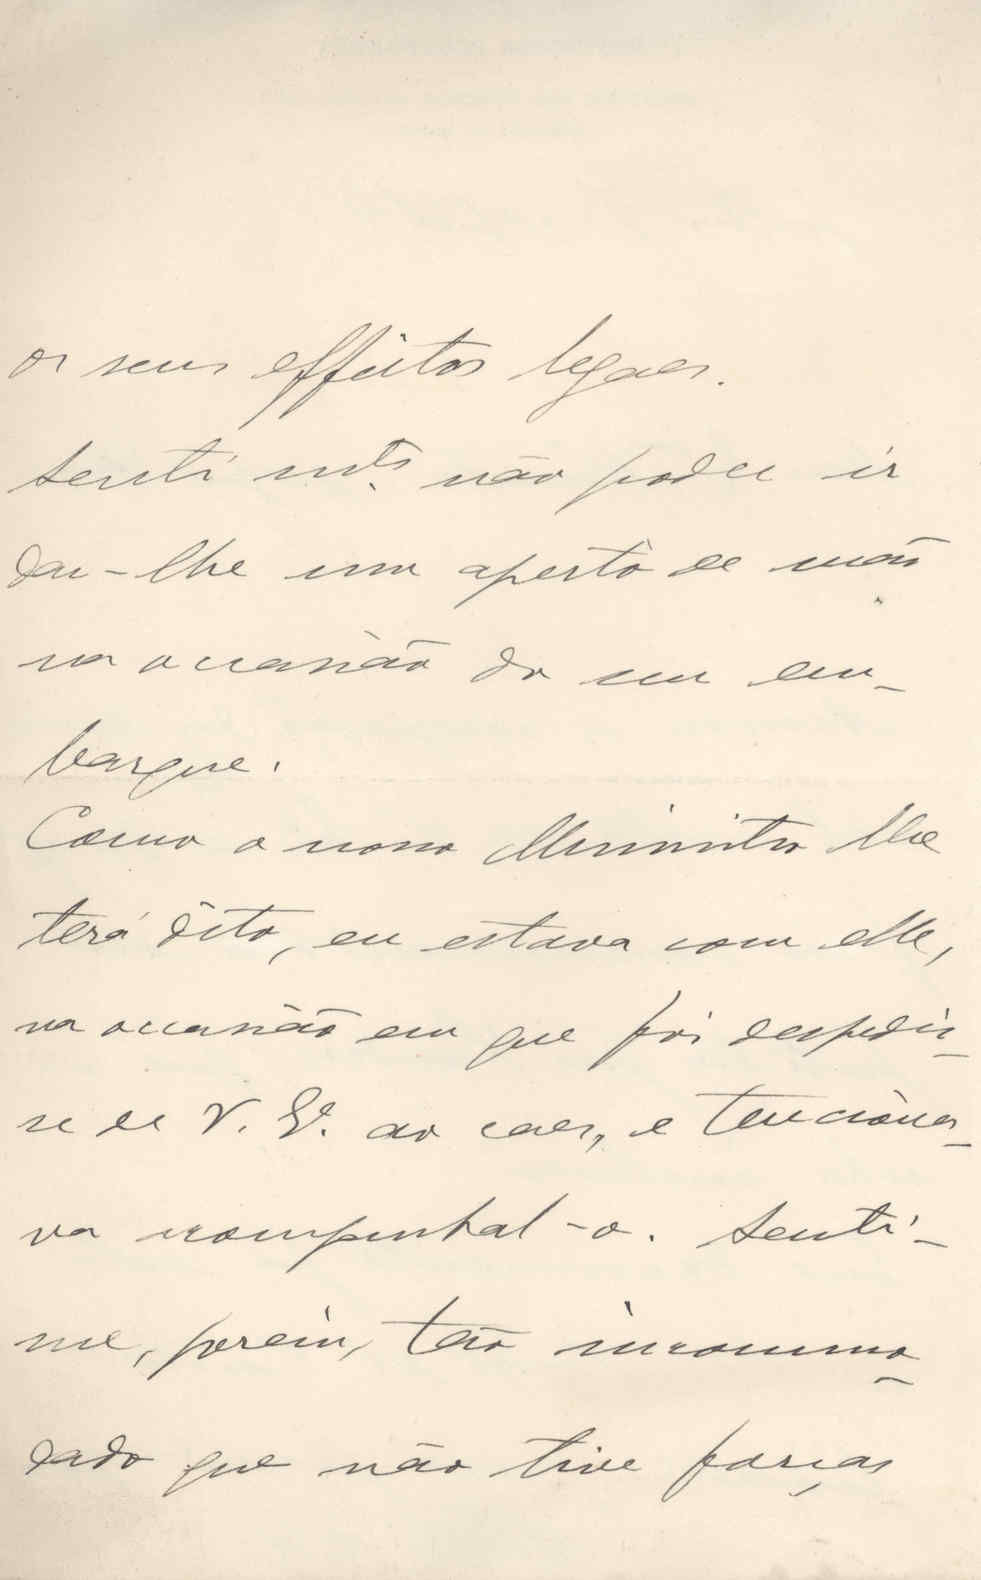 os seus effeitos legaes.
Senti mto. não poder ir
dar-lhe um aperto de mão
na occasião do seu em-
barque.
Como o nosso Ministro lhe
terá dito, eu estava com elle,
na occasião em que foi despedir-
se de V. Eª. ao caes, e tenciona-
va acompanhal-o. Senti-
me, porém, tão incommo-
dado que não tive forças